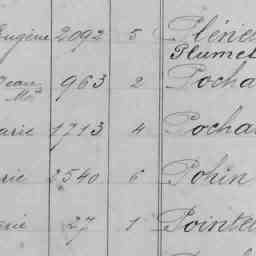 Eugène 2092 5 Pléne
Plumet
Jean 963 2 Pocha
Marie 1713 4 Pochar
rie 2540 6 Pohin
rie 27 1 Pointea